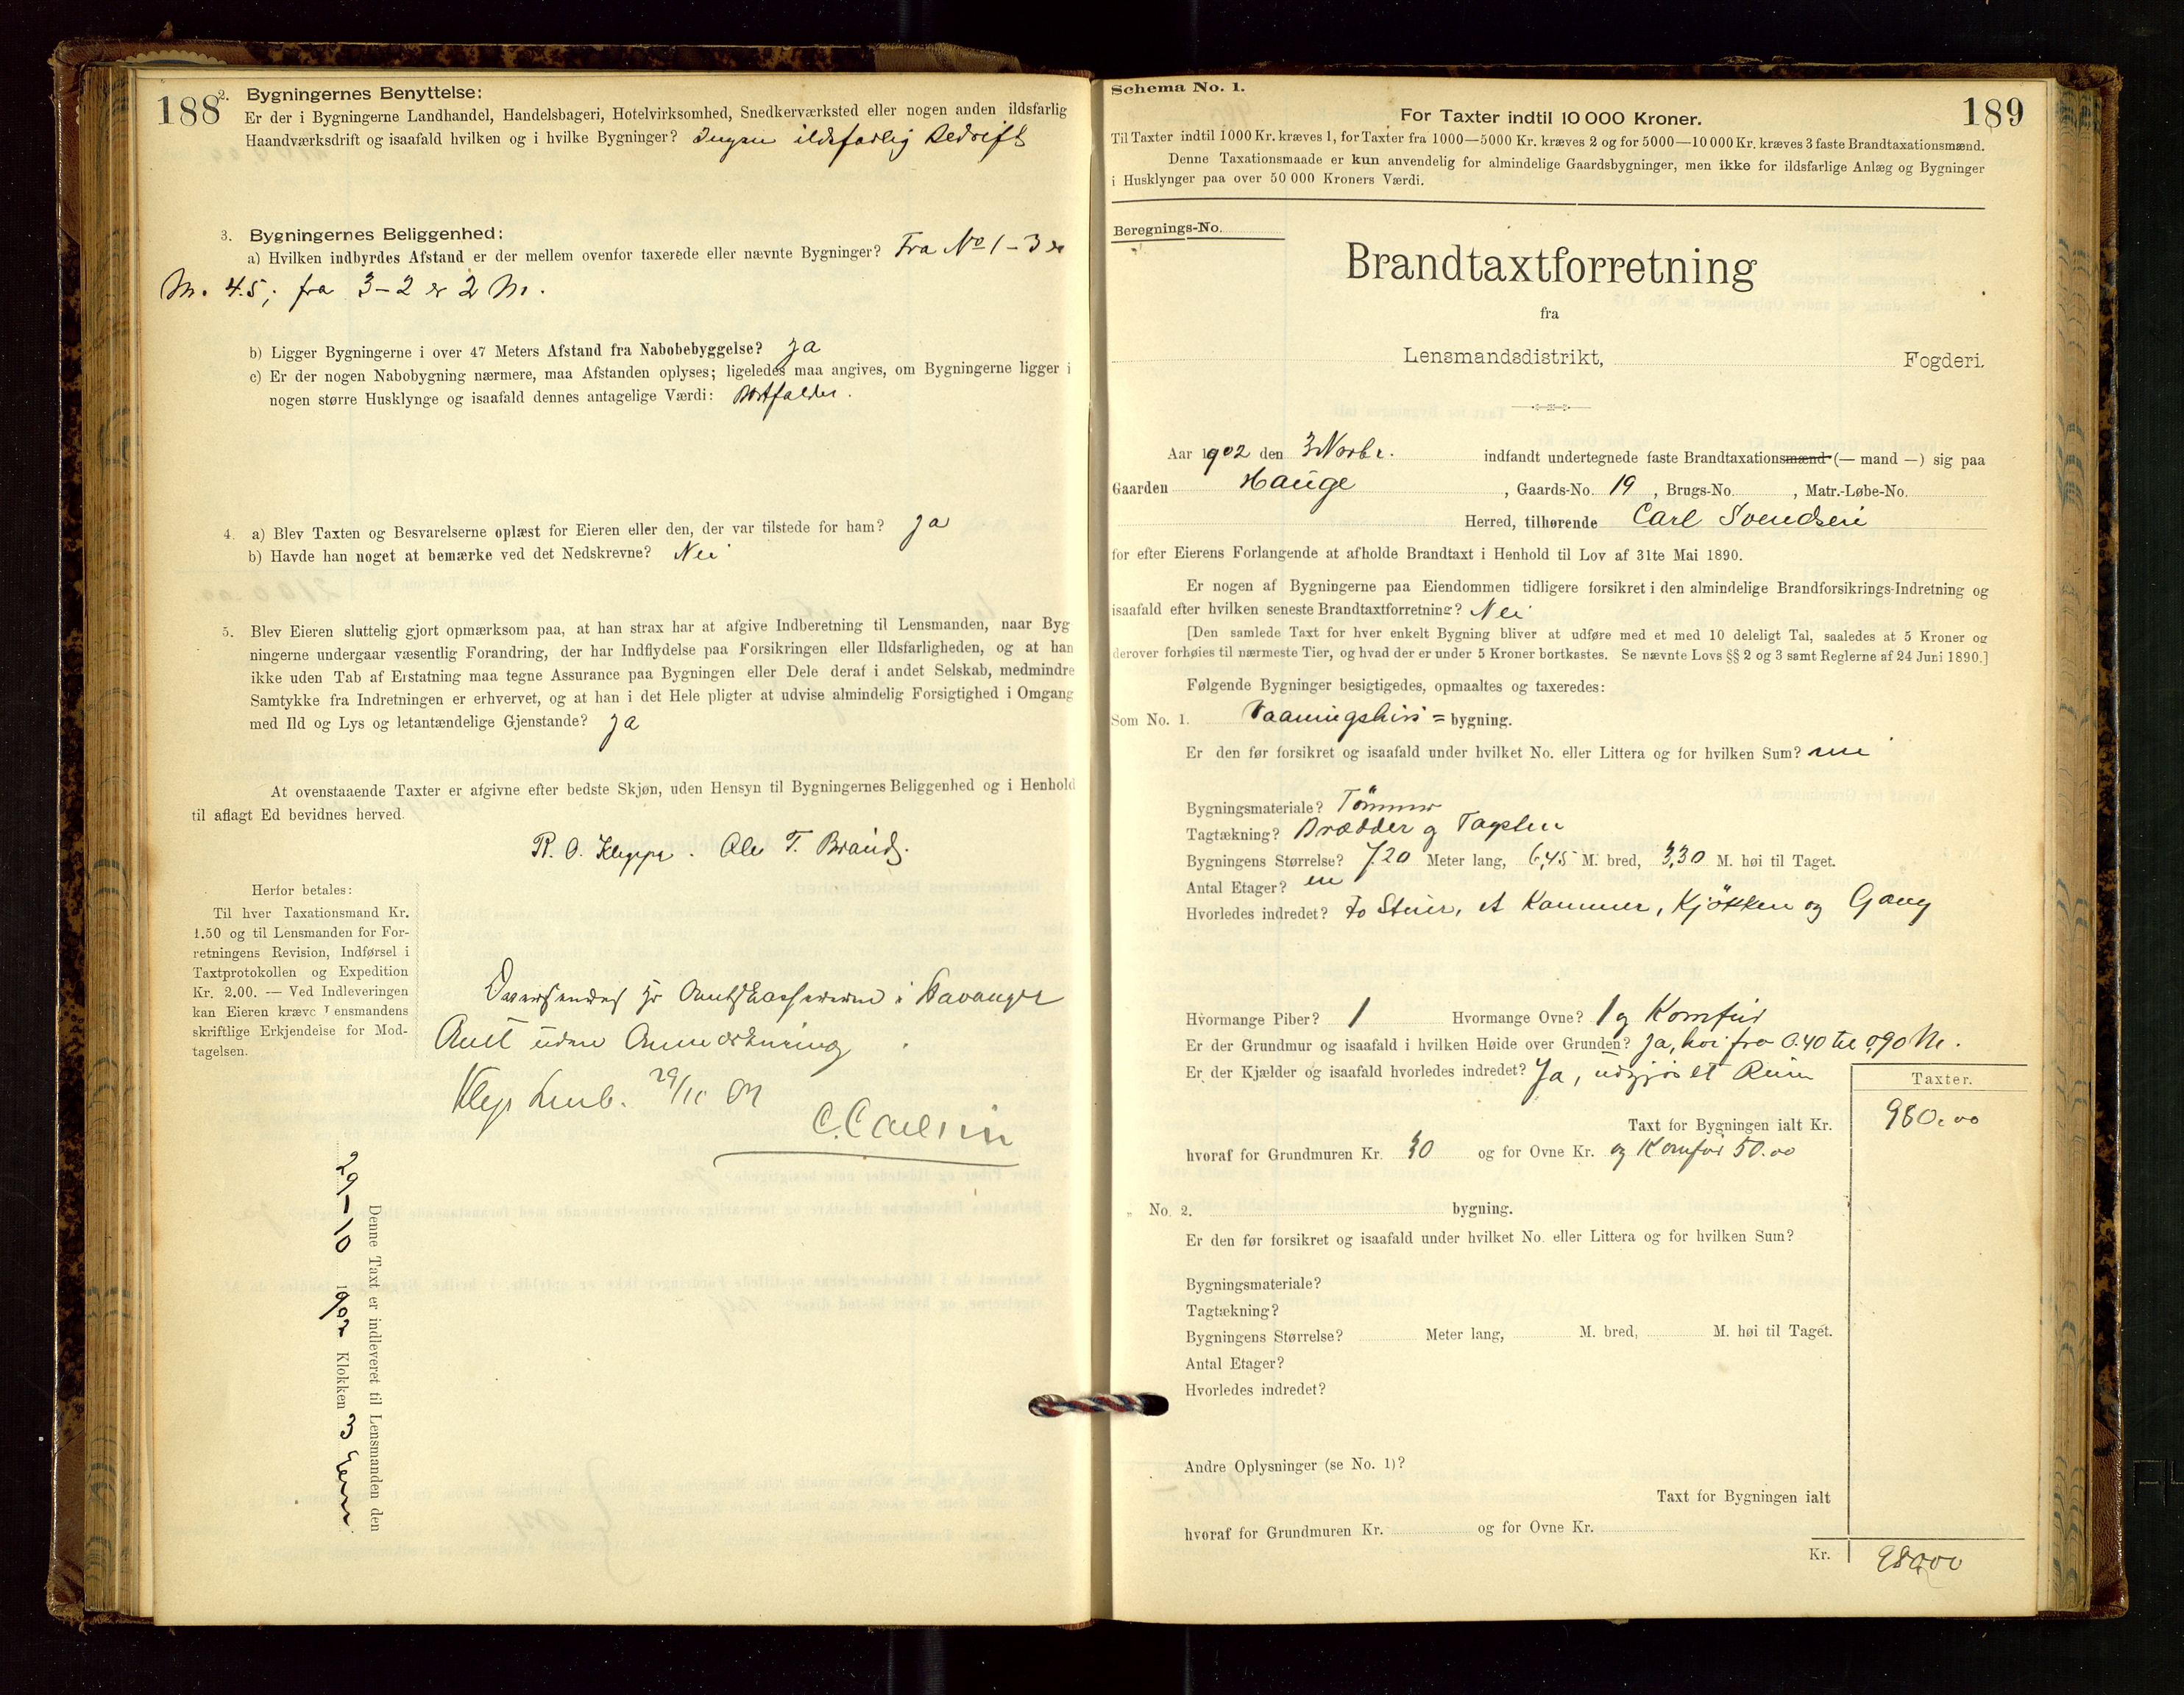 188
2. Bygningernes Benyttelse:
Er der i Bygningerne Landhandel, Handelsbageri, Hotelvirksomhed, Snedkerværksted eller nogen anden ildsfarlig
Haandværksdrift og isaafald hvilken og i hvilke Bygninger? Ingen ildsfarlig Bedrift
3. Bygningernes Beliggenhed:
a) Hvilken indbyrdes Afstand er der mellem ovenfor taxerede eller nævnte Bygninger? Fra No 1-3 er
M. 4.5; fra 3-2 er 2 M.
b) Ligger Bygningerne i over 47 Meters Afstand fra Nabobebyggelse? Ja
c) Er der nogen Nabobygning nærmere, maa Afstanden oplyses; ligeledes maa angives, om Bygningerne ligger i
nogen større Husklynge og isaafald dennes antagelige Værdi: Bortfalder.
4. a) Blev Taxten og Besvarelserne oplæst for Eieren eller den, der var tilstede for ham? Ja
b) Havde han noget at bemærke ved det Nedskrevne? Nei
5. Blev Eieren sluttelig gjort opmærksom paa, at han strax har at afgive Indberetning til Lensmanden, naar Byg
ningerne undergaar væsentlig Forandring, der har Indflydelse paa Forsikringen eller Ildsfarligheden, og at han
ikke uden Tab af Erstatning maa tegne Assurance paa Bygningen eller Dele deraf i andet Selskab, medmindre
Samtykke fra Indretningen er erhvervet, og at han i det Hele pligter at udvise almindelig Forsigtighed i Omgang
med Ild og Lys og letantændelige Gjenstande? Ja
At ovenstaaende Taxter er afgivne efter bedste Skjøn, uden Hensyn til Bygningernes Beliggenhed og i Henhold
til aflagt Ed bevidnes herved.
R. O. Kleppe. Ole T. Braud.
Herfor betales:
Til hver Taxationsmand Kr.
1.50 og til Lensmanden for For-
retningens Revision, Indførsel i
Taxtprotokollen og Expedition
Kr. 2.00. — Ved Indleveringen
kan Eieren kræve Lensmandens
skriftlige Erkjendelse for Mod-
tagelsen.
Oversendes hr Amtskassereren i Stavanger
Amt uden Anmærkning
Klep Lmb. 29/11 02
C. Carlsin
Denne Taxt er indleveret til Lensmanden den
29-10 1902 Klokken 3 Em.
189
Schema No. 1.
For Taxter indtil 10 000 Kroner.
Til Taxter indtil 1000 Kr. kræves 1, for Taxter fra 1000—5000 Kr. kræves 2 og for 5000—10 000 Kr. kræves 3 faste Brandtaxationsmænd.
Denne Taxationsmaade er kun anvendelig for almindelige Gaardsbygninger, men ikke for ildsfarlige Anlæg og Bygninger
i Husklynger paa over 50 000 Kroners Værdi.
Beregnings-No.
Brandtaxtforretning
fra
Lensmandsdistrikt, Fogderi.
Aar 1902 den 3 Novbr. indfandt undertegnede faste Brandtaxationsmænd (— mand —) sig paa
Gaarden Hauge, Gaards-No. 19, Brugs-No. , Matr.-Løbe-No.
Herred, tilhørende Carl Svendsen
for efter Eierens Forlangende at afholde Brandtaxt i Henhold til Lov af 31te Mai 1890.
Er nogen af Bygningerne paa Eiendommen tidligere forsikret i den almindelige Brandforsikrings-Indretning og
isaafald efter hvilken seneste Brandtaxtforretning? Nei
[Den samlede Taxt for hver enkelt Bygning bliver at udføre med et med 10 deleligt Tal, saaledes at 5 Kroner og
derover forhøies til nærmeste Tier, og hvad der er under 5 Kroner bortkastes. Se nævnte Lovs §§ 2 og 3 samt Reglerne af 24 Juni 1890.]
Følgende Bygninger besigtigedes, opmaaltes og taxeredes:
Som No. 1. Vaaningshus = bygning.
Er den før forsikret og isaafald under hvilket No. eller Littera og for hvilken Sum? nei
Bygningsmateriale? Tömmer
Tagtækning? Brædder og Tagsten
Bygningens Størrelse? 7.20 Meter lang, 6,45 M. bred, 3,30 M. høi til Taget.
Antal Etager? en
Hvorledes indredet? to Stuer, et Kammer, Kjökken og Gang
Hvormange Piber? 1 Hvormange Ovne? 1 og Komfur
Er der Grundmur og isaafald i hvilken Høide over Grunden? Ja, høi fra 0.40 til 0,90 M.
Er der Kjælder og isaafald hvorledes indredet? Ja, udgjør et Rum
Taxter.
Taxt for Bygningen ialt Kr. 980.00
hvoraf for Grundmuren Kr. 30 og for Ovne Kr. og Komfur 50.00
„ No. 2. bygning.
Er den før forsikret og isaafald under hvilket No. eller Littera og for hvilken Sum?
Bygningsmateriale?
Tagtækning?
Bygningens Størrelse? Meter lang, M. bred, M. høi til Taget.
Antal Etager?
Hvorledes indredet?
Andre Oplysninger (se No. 1)?
Taxt for Bygningen ialt
hvoraf for Grundmuren Kr. og for Ovne Kr.
Kr. 980,00